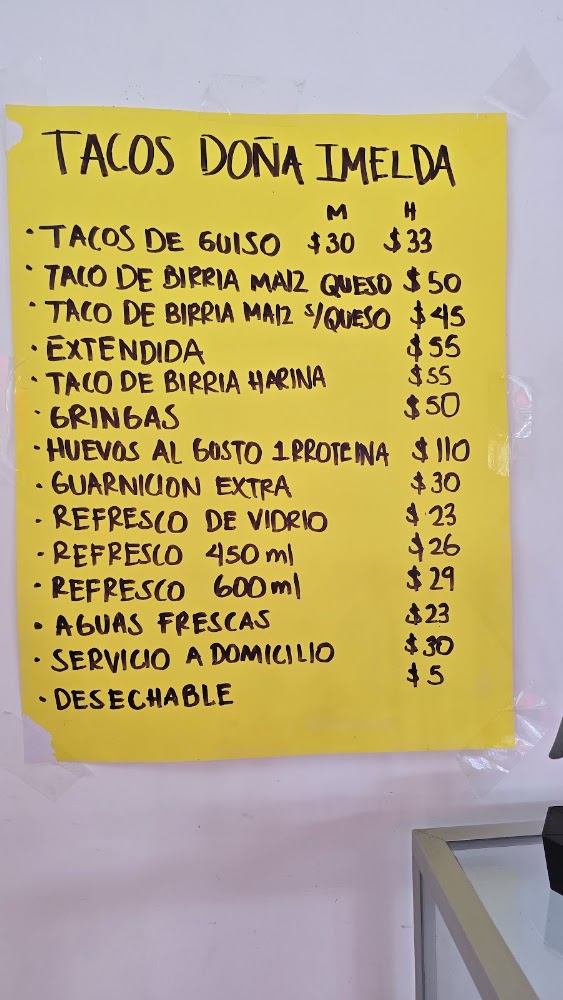 TACOS DOÑA IMELDA
M H
· TACOS DE GUISO $30 $33
· TACO DE BIRRIA MAIZ QUESO $50
· TACO DE BIRRIA MAIZ S/QUESO $45
· EXTENDIDA $55
· TACO DE BIRRIA HARINA $55
· GRINGAS $50
· HUEVOS AL GUSTO 1 PROTEINA $110
· GUARNICION EXTRA $30
· REFRESCO DE VIDRIO $23
· REFRESCO 450 ml $26
· REFRESCO 600 ml $29
· AGUAS FRESCAS $23
· SERVICIO A DOMICILIO $30
· DESECHABLE $5